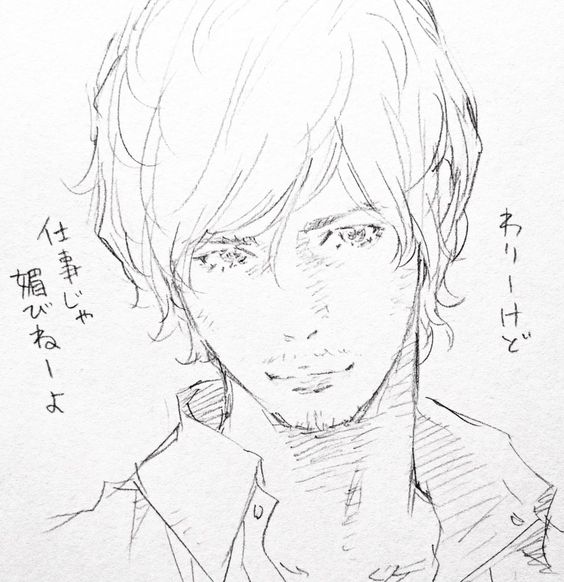 わりーけど
仕事じゃ
媚びねーよ